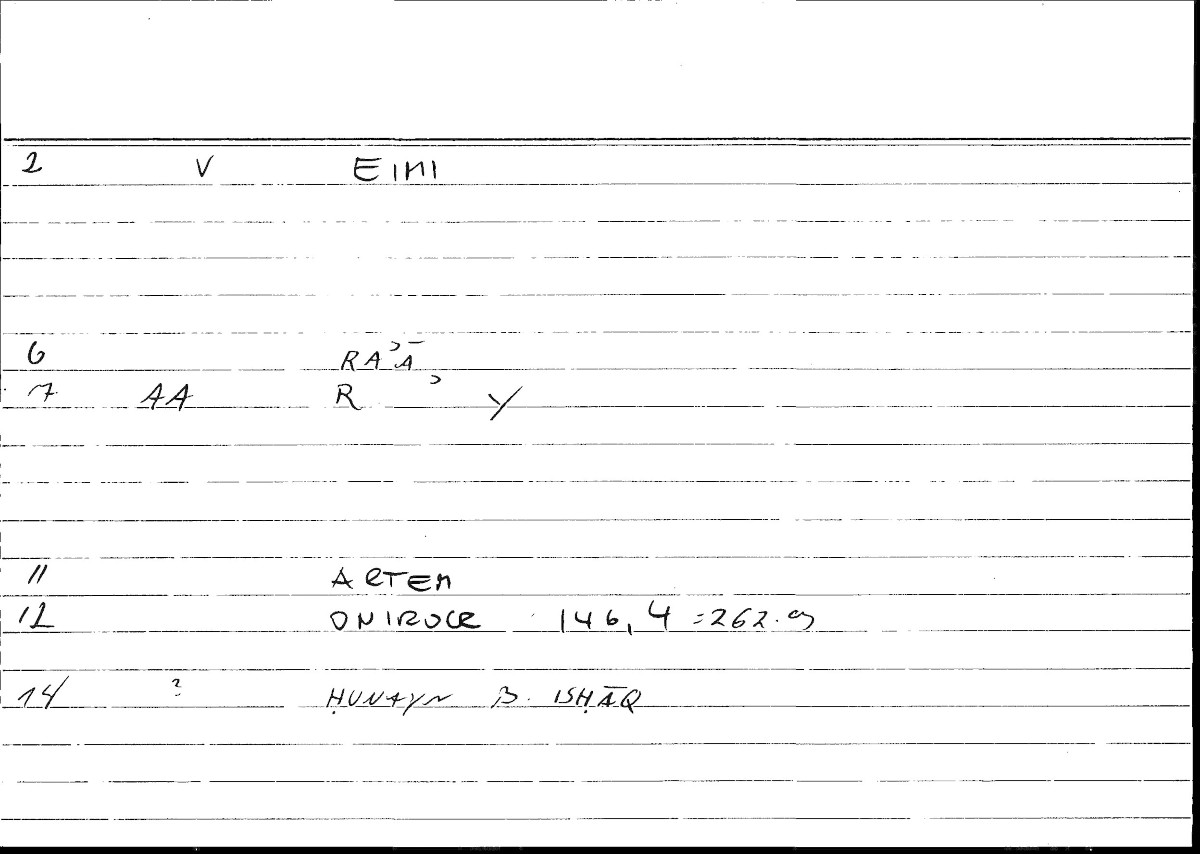 2 V EIMI
6 RAʾĀ
7 AA R ʾ Y
11 ARTEM
12 ONIROCR 146,4 = 262.9
14 ? ḤUNAYN B. ISḤĀQ